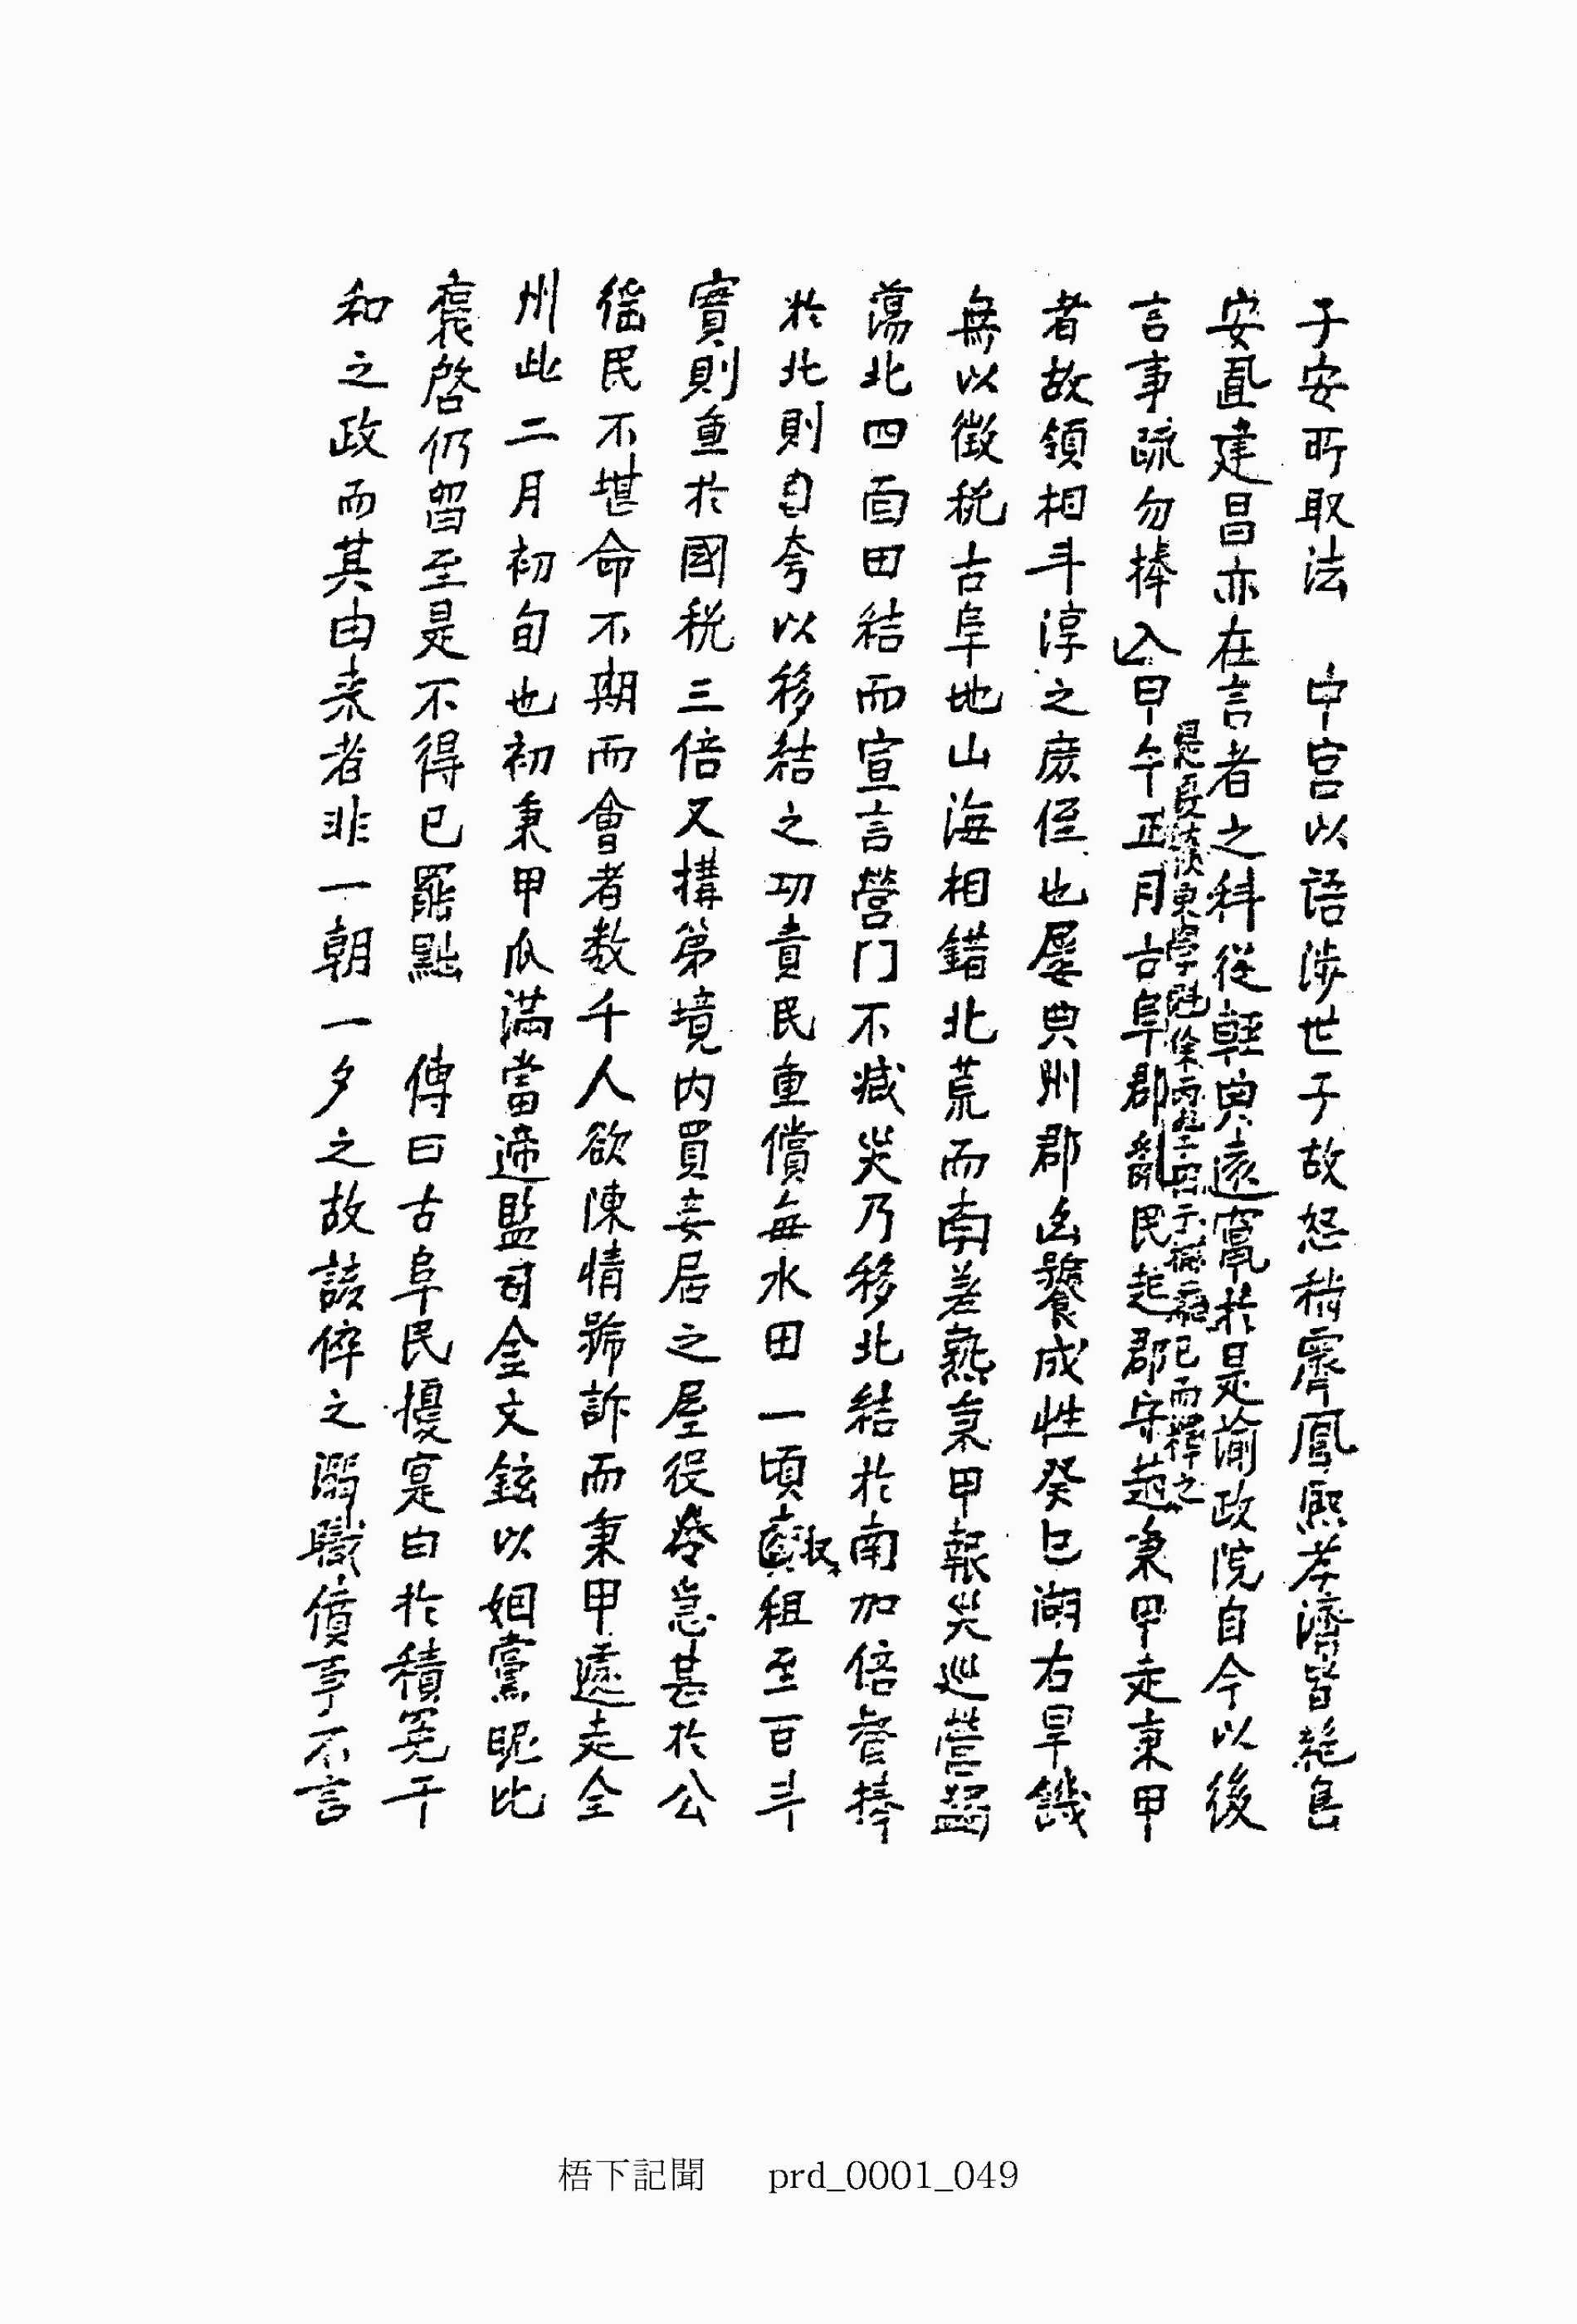 子安所取法　中宮以語涉世子故怒稍霽鳳熙孝濟皆絶島
安置建昌亦在言者之科從輕輿遠竄於是諭政院自今以後
是夏沃東學魁徐丙學囚于獄已而釋之
言事疏勿捧入甲午正月古阜郡亂民起郡守趙秉甲走秉甲
者故領相斗淳之庶侄也屢典州郡凶饕成性癸巳湖右旱饑
無以徵税古阜地山海相錯北荒而南差熟秉甲報災巡營
蕩北四面田結而宣言營門不减災乃移北結於南加倍督捧
於北則自夸以移結之功責民重償每水田一頃收租至百斗
實則重於國税三倍又搆第境内買妾居之屋役劵急甚於公
徭民不堪命不期而會者数千人欲陳情號訴而秉甲遽走全
州此二月初旬也初秉甲瓜滿當遞監司金文鉉以姻黨昵比
褒啓仍留至是不得已罷黜　傳曰古阜民擾寔由於積寃干
和之政而其由来者非一朝一夕之故該倅之溺職僨事不言